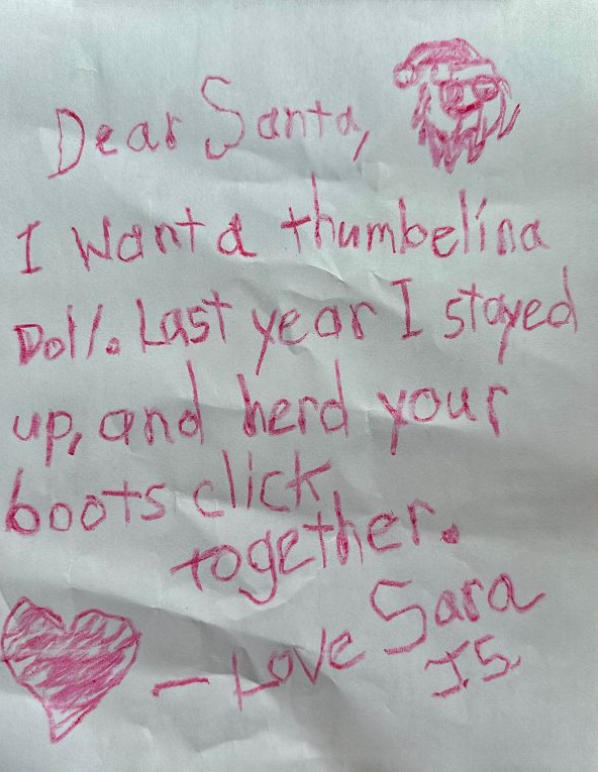 Dear Santa,
I want a thumbelina
Doll. Last year I stayed
up, and herd your
boots click
together.
- Love Sara
JS